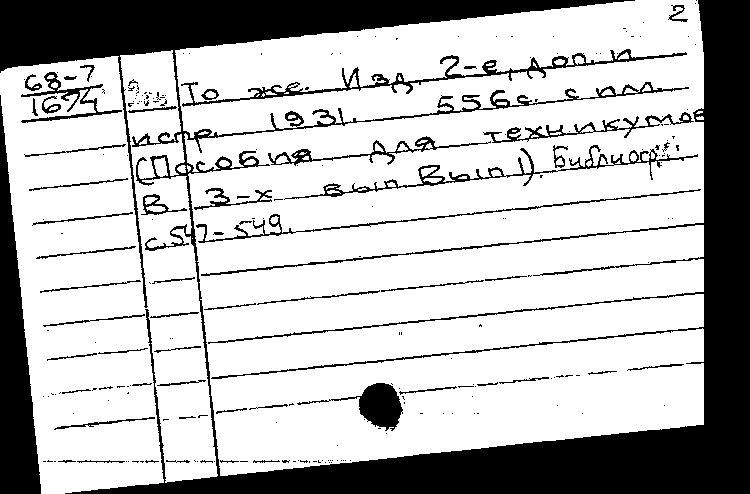 2
68-7
1674
То же. Изд. 2-е, доп. и
испр. 1931. 556с. с илл.
(Пособия для техникумов
В 3-х вып. Вып 1). Библиогр.:
с. 547-549.